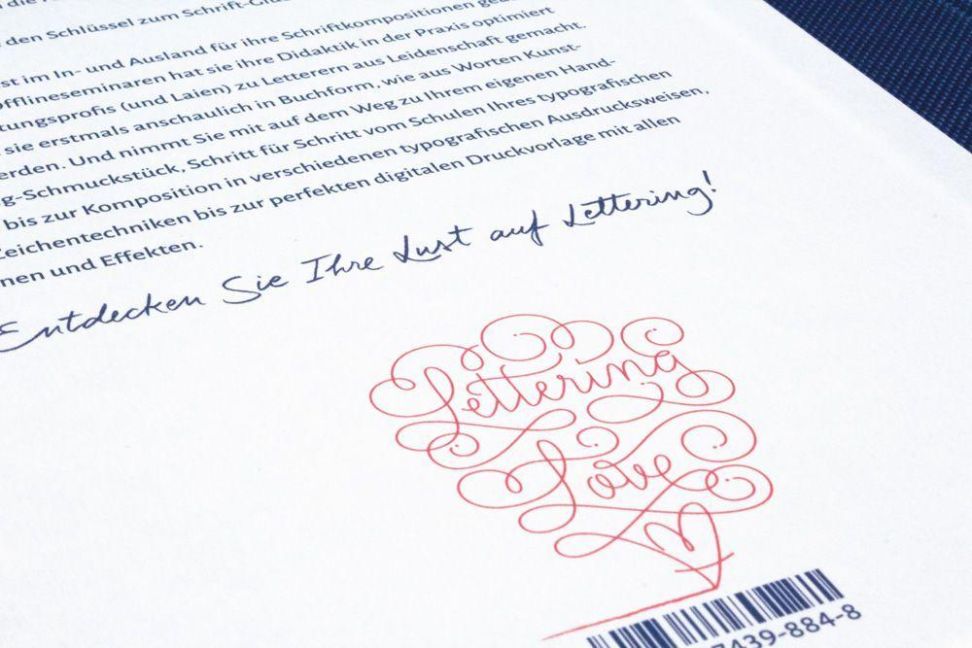 den Schlüssel zum Schrift-
im In- und Ausland für ihre Schriftkompositionen
hat sie ihre Didaktik in der Praxis optimiert
(und Laien) zu Letterern aus Leidenschaft gemacht.
sie erstmals anschaulich in Buchform, wie aus Worten Kunst-
erden. Und nimmt Sie mit auf dem Weg zu Ihrem eigenen Hand-
g-Schmuckstück, Schritt für Schritt vom Schulen Ihres typografischen
bis zur Komposition in verschiedenen typografischen Ausdrucksweisen,
Zeichentechniken bis zur perfekten digitalen Druckvorlage mit allen
nen und Effekten.
Entdecken Sie Ihre Lust auf Lettering!
Lettering
Love
7439-884-8